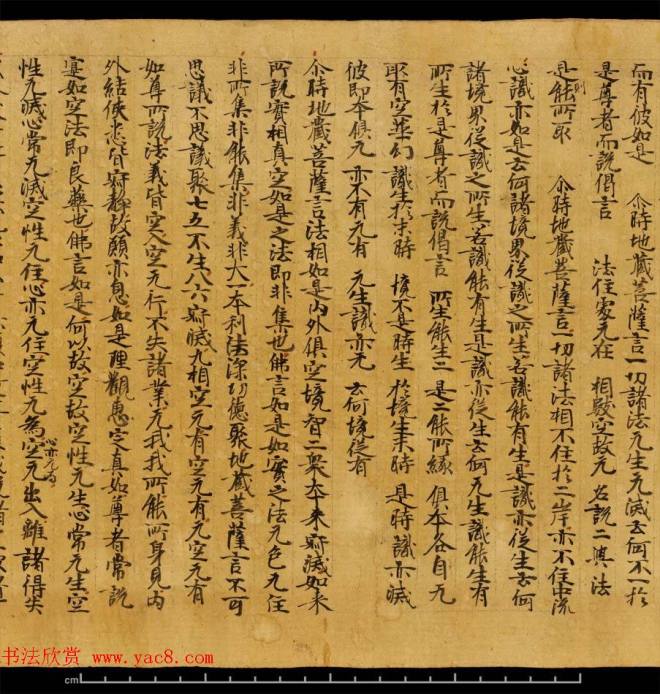 而有彼如是 尒時地藏菩薩言一切諸法无生无滅云何不一於
是尊者而說偈言 法住處无在 相㲉空故无 名說二與法
是則能所取 尒時地藏菩薩言一切諸法相不住於二岸亦不住中流
心識亦如是云何諸境界從識之所生若識能有生是識亦從生云何
諸境界從識之所生若識能有生是識亦從生云何无生識能生有
所生於是尊者而說偈言 所生能生二 是二能所緣 俱本各自无
取有空華幻 識生於未時 境不是時生 於境生未時 是時識亦滅
彼即本俱无 亦不有无有 无生識亦无 云何境從有
尒時地藏菩薩言法相如是内外俱空境智二衆本来寂滅如来
所說實相真空如是之法即非集也佛言如是如實之法无色无住
非所集非能集非義非大一本利法深功德聚地藏菩薩言不可
思議不思議聚七五不生八六寂滅九相空无有空无有无空无有
如尊所說法義皆空入空无行不失諸業无我我所能所身見内
外結使悉皆寂静故願亦息如是理觀惠定真如尊者常說
寔如空法即良藥也佛言如是何以故空故空性无生心常无生空
性无滅心常无滅空性无住心亦无住空性无為心亦无為空无出入離諸得失
书法欣赏 http://www.yac8.com
cm